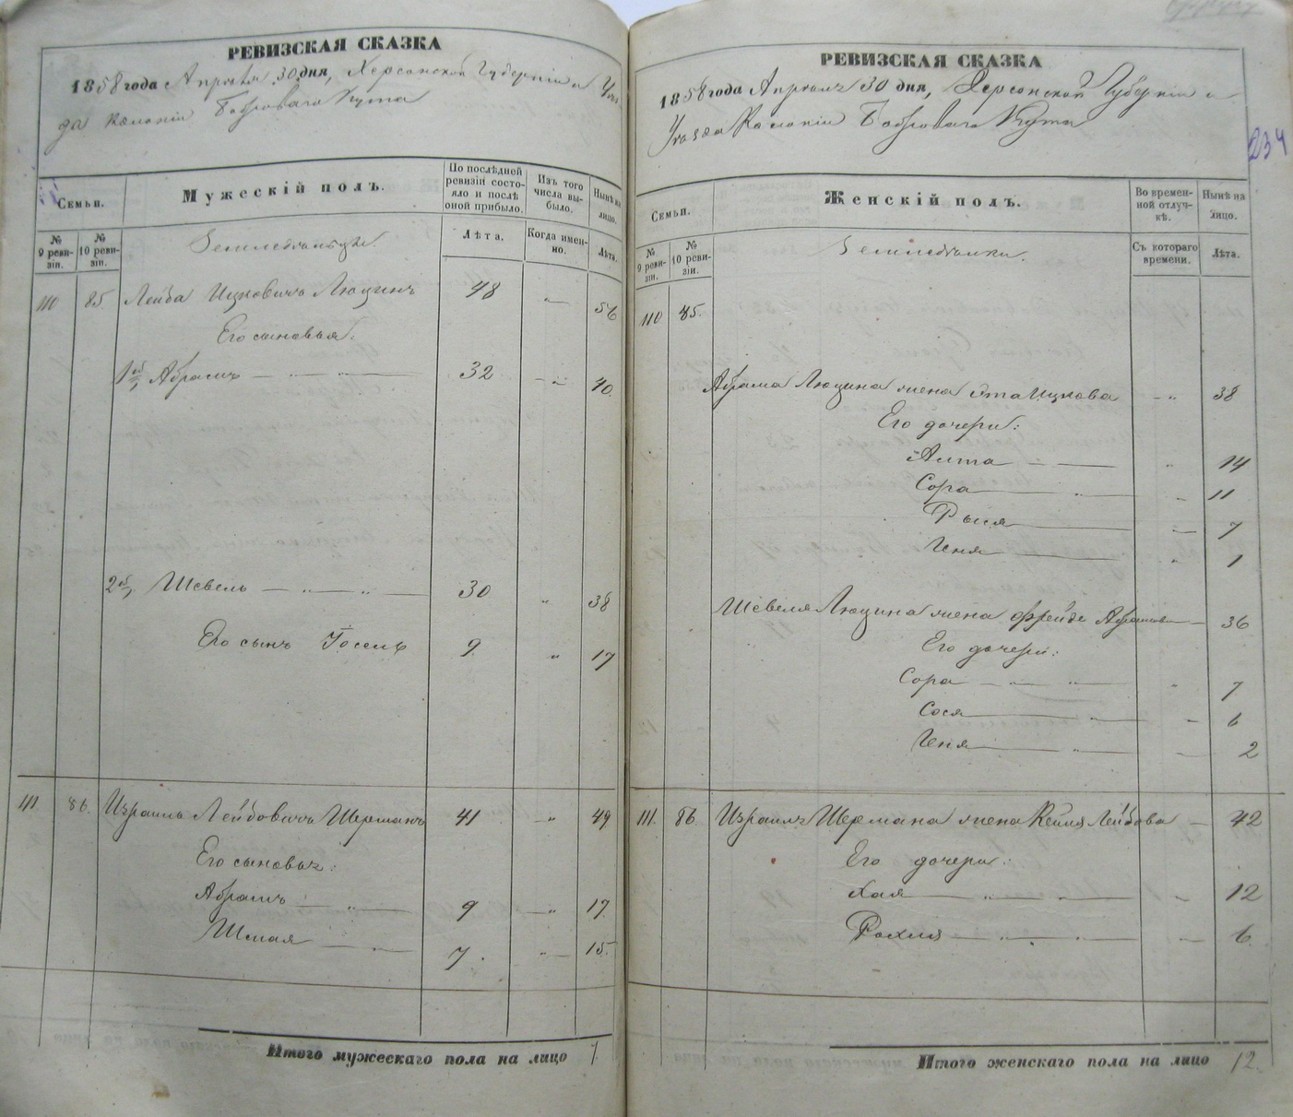 РЕВИЗСКАЯ СКАЗКА
1858 года Апреля 30 дня, Херсонской Губернии и Уез
да Колонии Боброваго Кута
Семьи.
Мужескій полъ.
По послѣдней ревизіи состояло и послѣ оной прибыло.
Изъ того числа выбыло.
Нынѣ на лицо.
№ 9 ревизіи.
№ 10 ревизіи.
Земледѣльцы.
Лѣта.
Когда именно.
Лѣта.
110 85. Лейба Ицковичъ Люцинъ 48 — 56
Его сыновья:
1й, Абрамъ — „ — „ — 32 — „ 40.
2й, Шевель — „ — „ — 30 „ 38
Его сынъ Іосель 9. „ 17
111. 86. Израиль Лейбовичъ Шерманъ 41 — „ 49
Его сыновья:
Абрамъ — „ — 9 — „ 17.
Шмая — „ 7. „ — 15.
Итого мужескаго пола на лицо 7.
РЕВИЗСКАЯ СКАЗКА
1858 года Апреля 30 дня, Херсонской Губерніи и
Уезда Колоніи Боброваго Кута
234
Семьи.
Женскій полъ.
Во временной отлучкѣ.
Нынѣ на лицо.
№ 9 ревизіи.
№ 10 ревизіи.
Земледѣлки.
Съ котораго времени.
Лѣта.
110 85.
Абрама Люцина жена Эта Ицкова — „ 38
Его дочери:
Алта — „ — „ 14
Сора — „ — „ 11
Рыся — — 7
Геня — „ — „ 1
Шевеля Люцина жена Фрейде Абрамова — 36
Его дочери:
Сора — „ — „ — „ 7
Сося — „ — „ 6
Геня — „ — — 2
111. 86. Израиля Шермана жена Кейля Лейбова — 42
Его дочери:
Хая — „ — „ — 12
Рохля — „ — „ — — 6.
Итого женскаго пола на лицо 12.